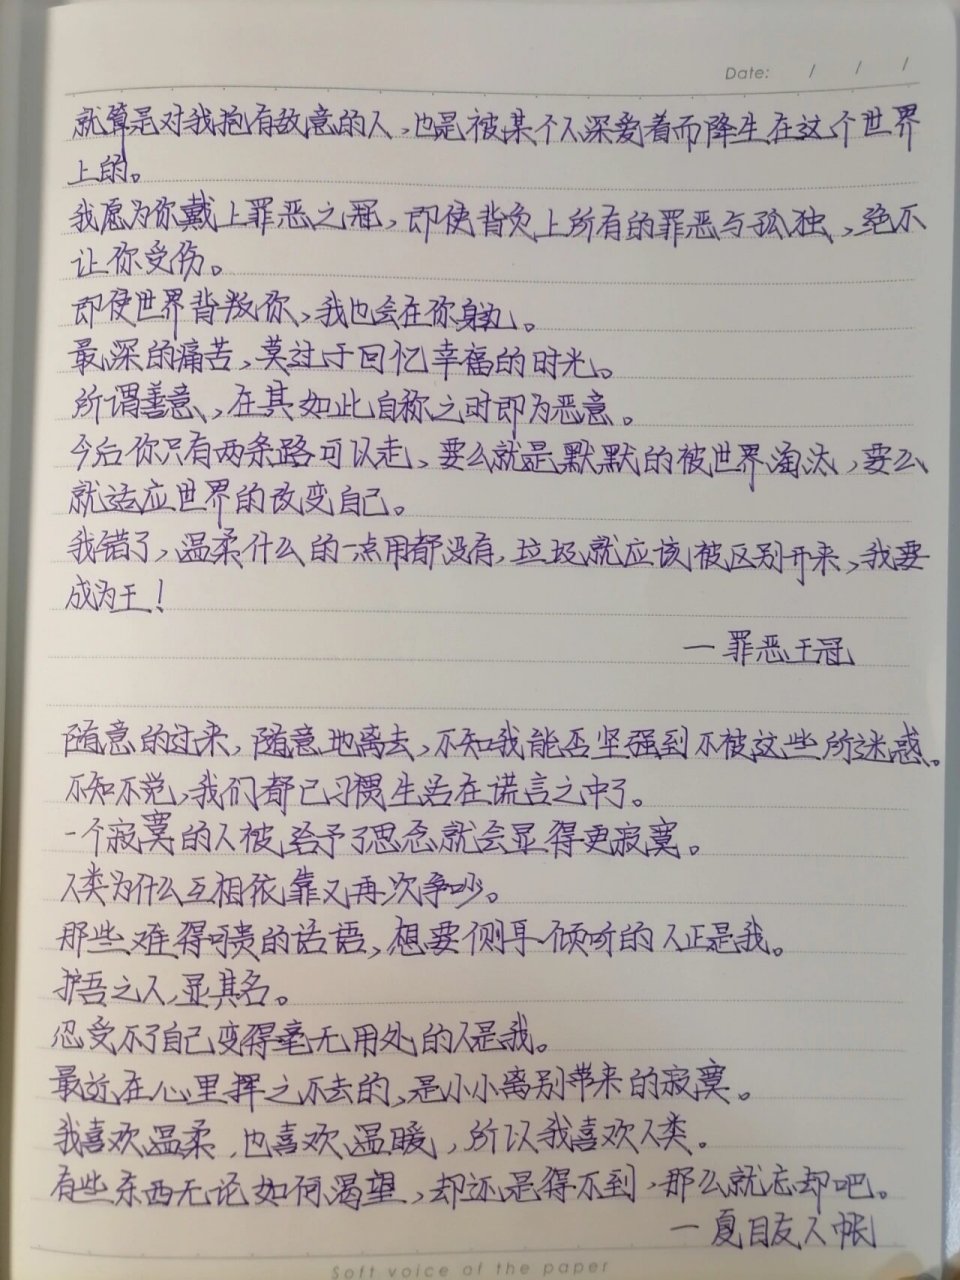 Date: / / /
就算是对我抱有敌意的人，也是被某个人深爱着而降生在这个世界
上的。
我愿为你戴上罪恶之冠，即使背负上所有的罪恶与孤独，绝不
让你受伤。
即使世界背叛你，我也会在你身边。
最深的痛苦，莫过于回忆幸福的时光。
所谓善意，在其如此自称之时即为恶意。
今后你只有两条路可以走，要么就是默默的被世界淘汰，要么
就适应世界的改变自己。
我错了，温柔什么的一点用都没有，垃圾就应该被区别开来，我要
成为王！
—罪恶王冠
随意的过来，随意地离去，不知我能否坚强到不被这些所迷惑。
不知不觉，我们都已习惯生活在谎言之中了。
一个寂寞的人被给予了思念就会显得更寂寞。
人类为什么互相依靠又再次争吵。
那些难得可贵的话语，想要侧耳倾听的人正是我。
护吾之人，显其名。
忍受不了自己变得毫无用处的人是我。
最近在心里挥之不去的，是小小离别带来的寂寞。
我喜欢温柔，也喜欢温暖，所以我喜欢人类。
有些东西无论如何渴望，却还是得不到，那么就忘却吧。
—夏目友人帐
Soft voice of the paper